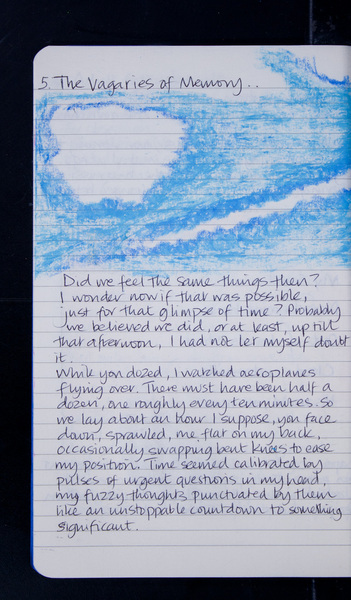 5. The Vagaries of Memory..
Did we feel the same things then?
I wonder now if that was possible,
just for that glimpse of time? Probably
we believed we did, or at least, up till
that afternoon, I had not let myself doubt
it.
While you dozed, I watched aeroplanes
flying over. There must have been half a
dozen, one roughly every ten minutes. So
we lay about an hour I suppose, you face
down, sprawled, me flat on my back,
occasionally swapping bent knees to ease
my position. Time seemed calibrated by
pulses of urgent questions in my head,
my fuzzy thoughts punctuated by them
like an unstoppable countdown to something
significant.